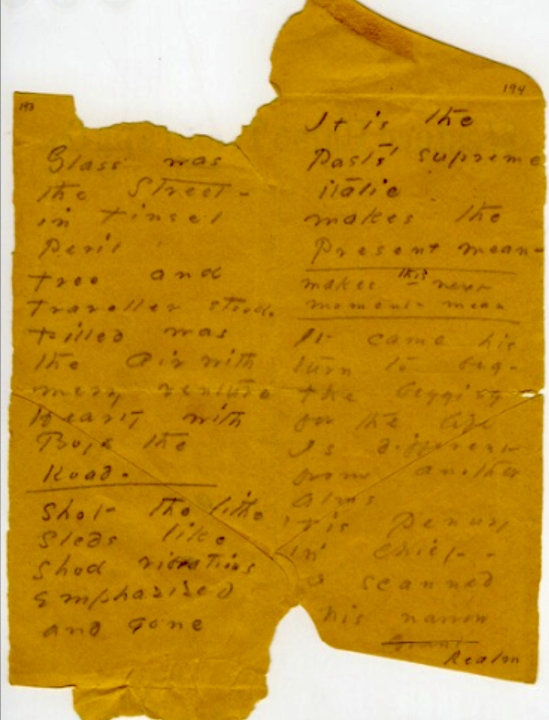 193
Glass was
the Street -
in tinsel
Peril
tree and
traveller stood.
filled was
the air with
merry venture
Hearty with
Boys the
Road.
Shot the lithe
Sleds like
Shod vibrations
Emphasized
and gone
194
It is the
Past's supreme
italic
makes the
Present mean -
makes this next
moment mean
It came his
turn to beg -
the begging
for the life
Is different
from another
alms
'tis Penury
in Chief -
scanned
his narrow
Realm